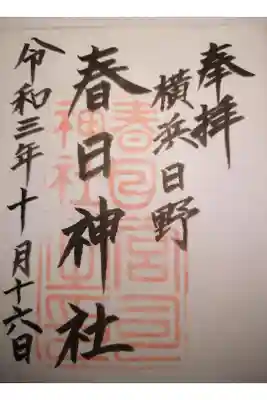 奉拝
横浜日野
春日神社
令和三年十月十六日